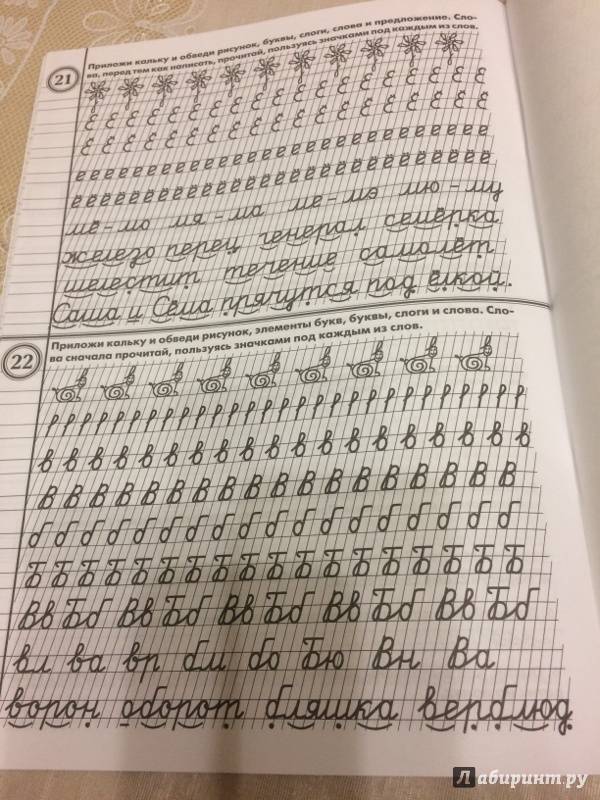 21
Приложи кальку и обведи рисунок, буквы, слоги, слова и предложение. Сло-
ва, перед тем как написать, прочитай, пользуясь значками под каждым из слов.
Е Е Е Е Е Е Е Е Е Е Е Е Е Е Е Е Е
Ё Ё Ё Ё Ё Ё Ё Ё Ё Ё Ё Ё Ё Ё Ё Ё Ё
е е е е е е е е е е е е е е е е е е е е е е е е е е е
ё ё ё ё ё ё ё ё ё ё ё ё ё ё ё ё ё ё ё ё ё ё ё ё ё ё ё
мё – мо мя – ма ме – мэ мю – му
железо перец генерал семёрка
шелестит течение самолёт
Саша и Сёма прячутся под ёлкой.
22
Приложи кальку и обведи рисунок, элементы букв, буквы, слоги и слова. Сло-
ва сначала прочитай, пользуясь значками под каждым из слов.
в в в в в в в в в в в в в в в в в в в
В В В В В В В В В В В В В В В В В В В
б б б б б б б б б б б б б б б б б б б
Б Б Б Б Б Б Б Б Б Б Б Б Б Б Б Б Б Б Б
Вв Бб Вв Бб Вв Бб Вв Бб Вв Бб
вл ва вр бл бо Бю Вн Ва
ворон оборот бляшка верблюд
Лабиринт.ру